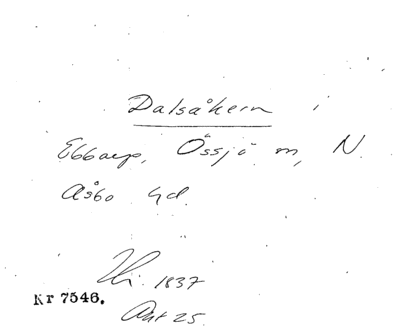 Dalsåkern i
Ebbarp, Össjö m, N.
Åsbo hd.
1837
Kr 7546.
Akt 25.